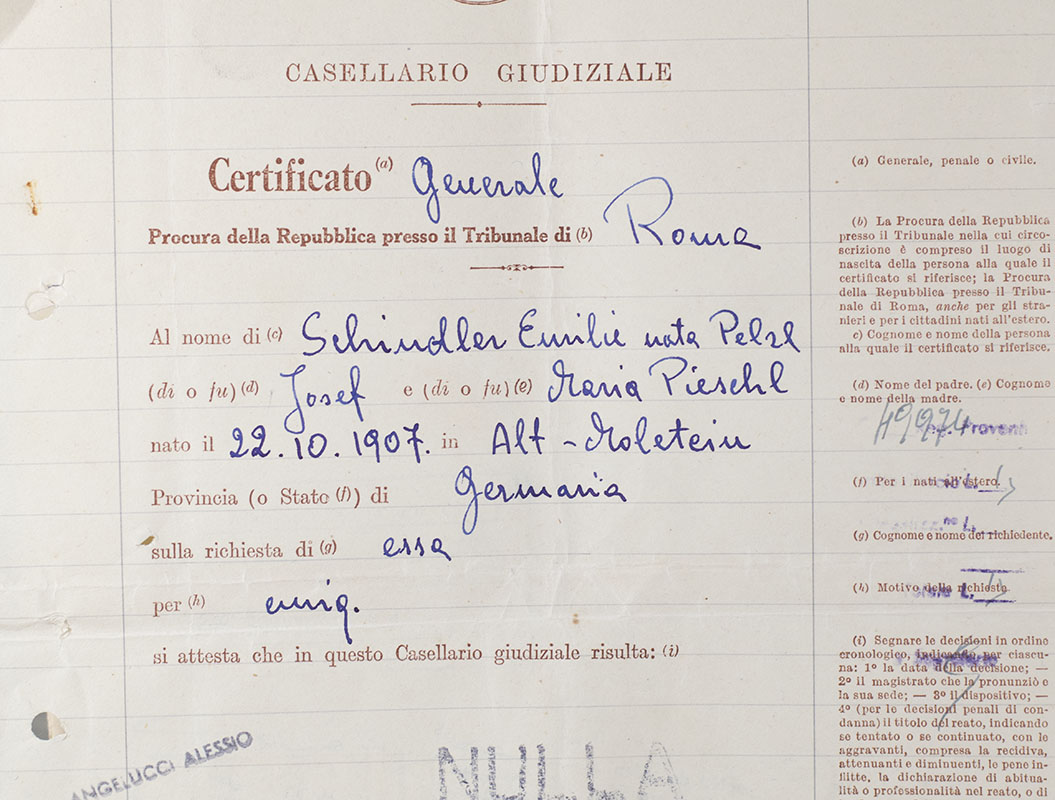 CASELLARIO GIUDIZIALE
Certificato (a) Generale
Procura della Repubblica presso il Tribunale di (b) Roma
Al nome di (c) Schindler Emilie nata Pelzl
(di o fu) (d) Josef e (di o fu) (e) Maria Pieschl
nato il 22.10.1907. in Alt-Moletein
Provincia (o Stato (f)) di Germania
sulla richiesta di (g) essa
per (h) emig.
si attesta che in questo Casellario giudiziale risulta: (i)
ANGELUCCI ALESSIO
NULLA
(a) Generale, penale o civile.
(b) La Procura della Repubblica
presso il Tribunale nella cui circo-
scrizione è compreso il luogo di
nascita della persona alla quale il
certificato si riferisce; la Procura
della Repubblica presso il Tribu-
nale di Roma, anche per gli stra-
nieri e per i cittadini nati all'estero.
c) Cognome e nome della persona
alla quale il certificato si riferisce.
(d) Nome del padre. (e) Cognome
e nome della madre.
49974
(f) Per i nati all'estero.
(g) Cognome e nome del richiedente.
(h) Motivo della richiesta
(i) Segnare le decisioni in ordine
cronologico, indicando per ciascu-
na: 1º la data della decisione; —
2º il magistrato che la pronunziò e
la sua sede; — 3º il dispositivo; —
4º (per le decisioni penali di con-
danna) il titolo del reato, indicando
se tentato o se continuato, con le
aggravanti, compresa la recidiva,
attenuanti e diminuenti, le pene in-
flitte, la dichiarazione di abitua-
lità o professionalità nel reato, o di